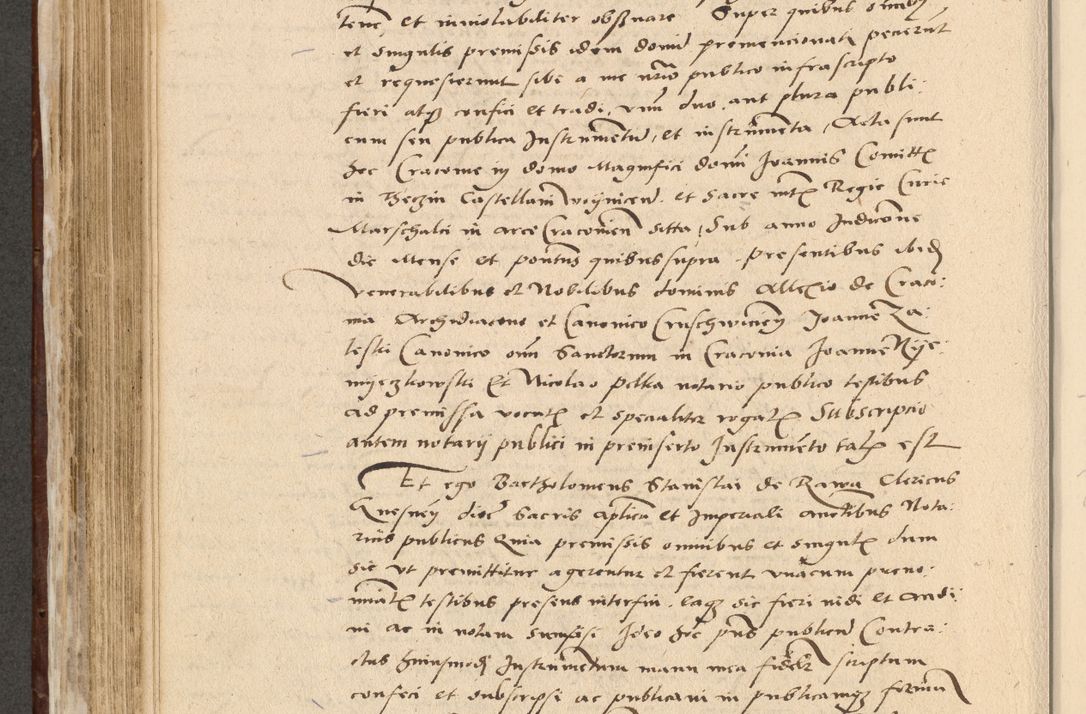 tene, et inviolabiliter obseruare Super quibus omnibus
et singulis premissis idem domini prenominati petierunt
et requesierunt sibi a me notario publico infrascripto
fieri atque confici et tradi, unum duo aut plura publi:
cum seu publica Instrumentum, et instrumenta, Acta sunt
hec Cracouie in domo Magnifici domini Joannis Comittis
in Theczin Castellani woynicen. et Sacre mtis Regie Curie
Marschalci in arce Cracouien sitta, Sub anno Indicione
die Mense et pontus quibus supra. presentibus ibidem
venerabilibus et Nobilibus dominis Allexio de Craco:
uia Archidiacono et Canonico Cruschwicien Joanne Za:
leski Canonico omnium Sanctorum in Cracouia Joanne Nye:
myeczkowski Et Nicolao pelka notario publico testibus
ad premissa vocatis et specialiter rogatis Subscripcio
autem notarij publici in preinserto Instrumento talis est
Et ego Bartholomeus Stanislai de Rawa Clericus
Gnesnen dioc Sacris aplica et Imperiali auctibus Nota:
rius publicus Quia premissis omnibus et singulis dum
sic ut premittitur agerentur et fierent vnacum preno:
minatis testibus presens interfui. eaque sic fieri vidi et audi:
ui ac in notam sumpsi Ideo hoc pns publicum Contra:
ctus huiusmodi Instrumentum manu mea fideliter scriptum
confeci et subscripsi ac publicaui in publicamque formam